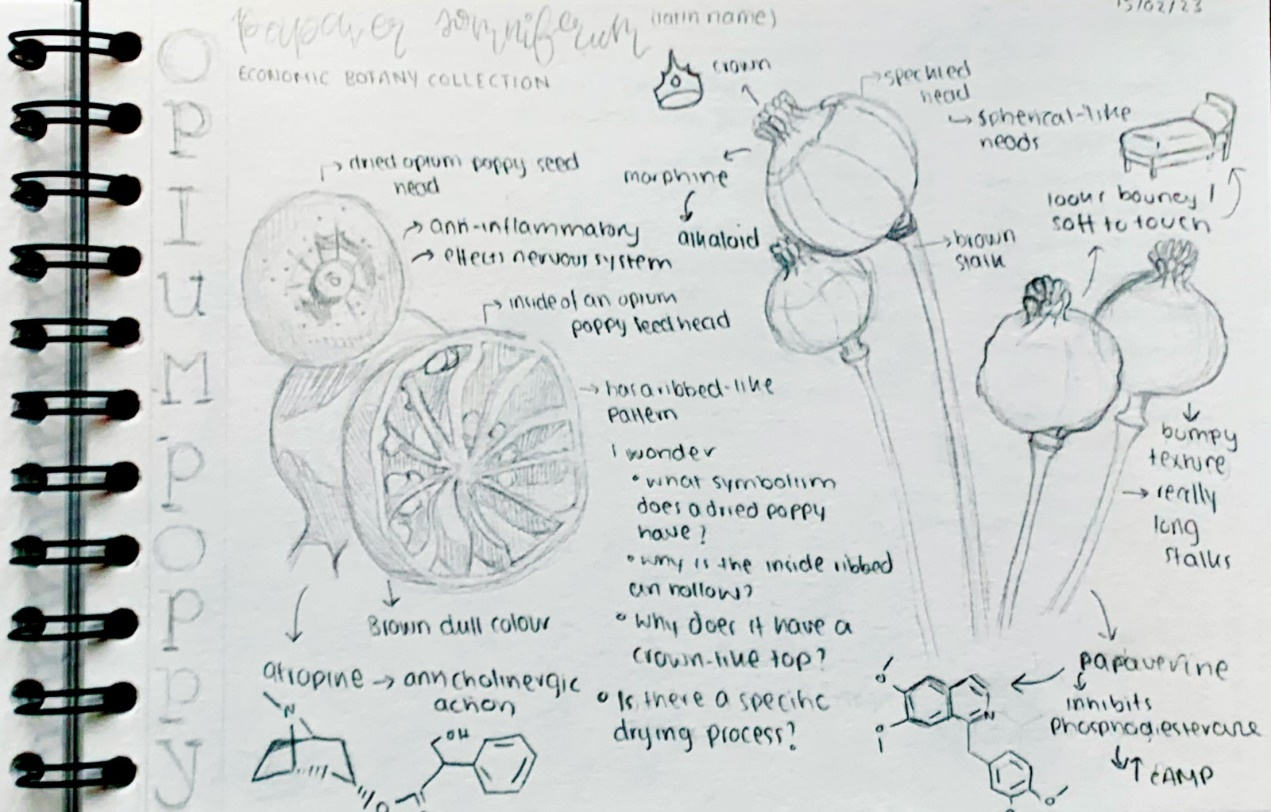 15/02/23
Papaver somniferum (latin name)
ECONOMIC BOTANY COLLECTION
OPIUM POPPY
dried opium poppy seed
head
anti-inflammatory
effects nervous system
inside of an opium
poppy seed head
has a ribbed-like
pattern
I wonder
• what symbolism
does a dried poppy
have?
• why is the inside ribbed
an hollow?
• Why does it have a
crown-like top?
• Is there a specific
drying process?
Brown dull colour
atropine → anticholinergic
action
N
OH
O
crown
morphine
alkaloid
speckled
head
spherical-like
heads
brown
stalk
bouncy /
soft to touch
bumpy
texture
→ really
long
stalks
papaverine
inhibits
phosphodiesterase
↑ cAMP
O
O
N
O